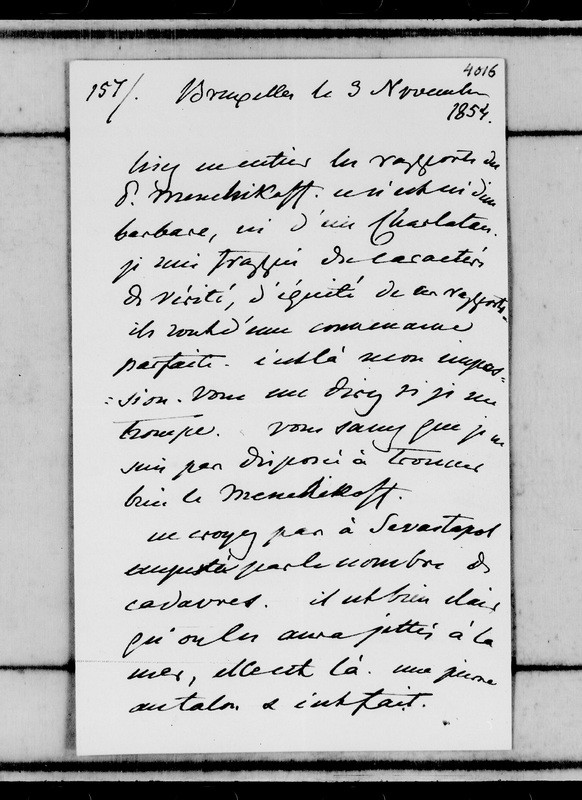 4016
157/. Bruxelles le 3 Novembre
1854.
lisez en entier les rapports du
P. Menchikoff. ce n'est ni d'un
barbare, ni d'un Charlatan.
je suis frappé du caractère
de vérité, d'équité de ces rapports.
ils sont d'une convenance
parfaite. c'est là mon impres=
=sion. vous me direz si je me
trompe. vous savez que je ne
suis pas disposé à trouver
bien le Menchikoff.
ne croyez pas à Sevastopol
empesté par le nombre de
cadavres. il est bien clair
qu'on les aura jettés à la
mer, elle est là. une pierre
au talon & c'est fait.